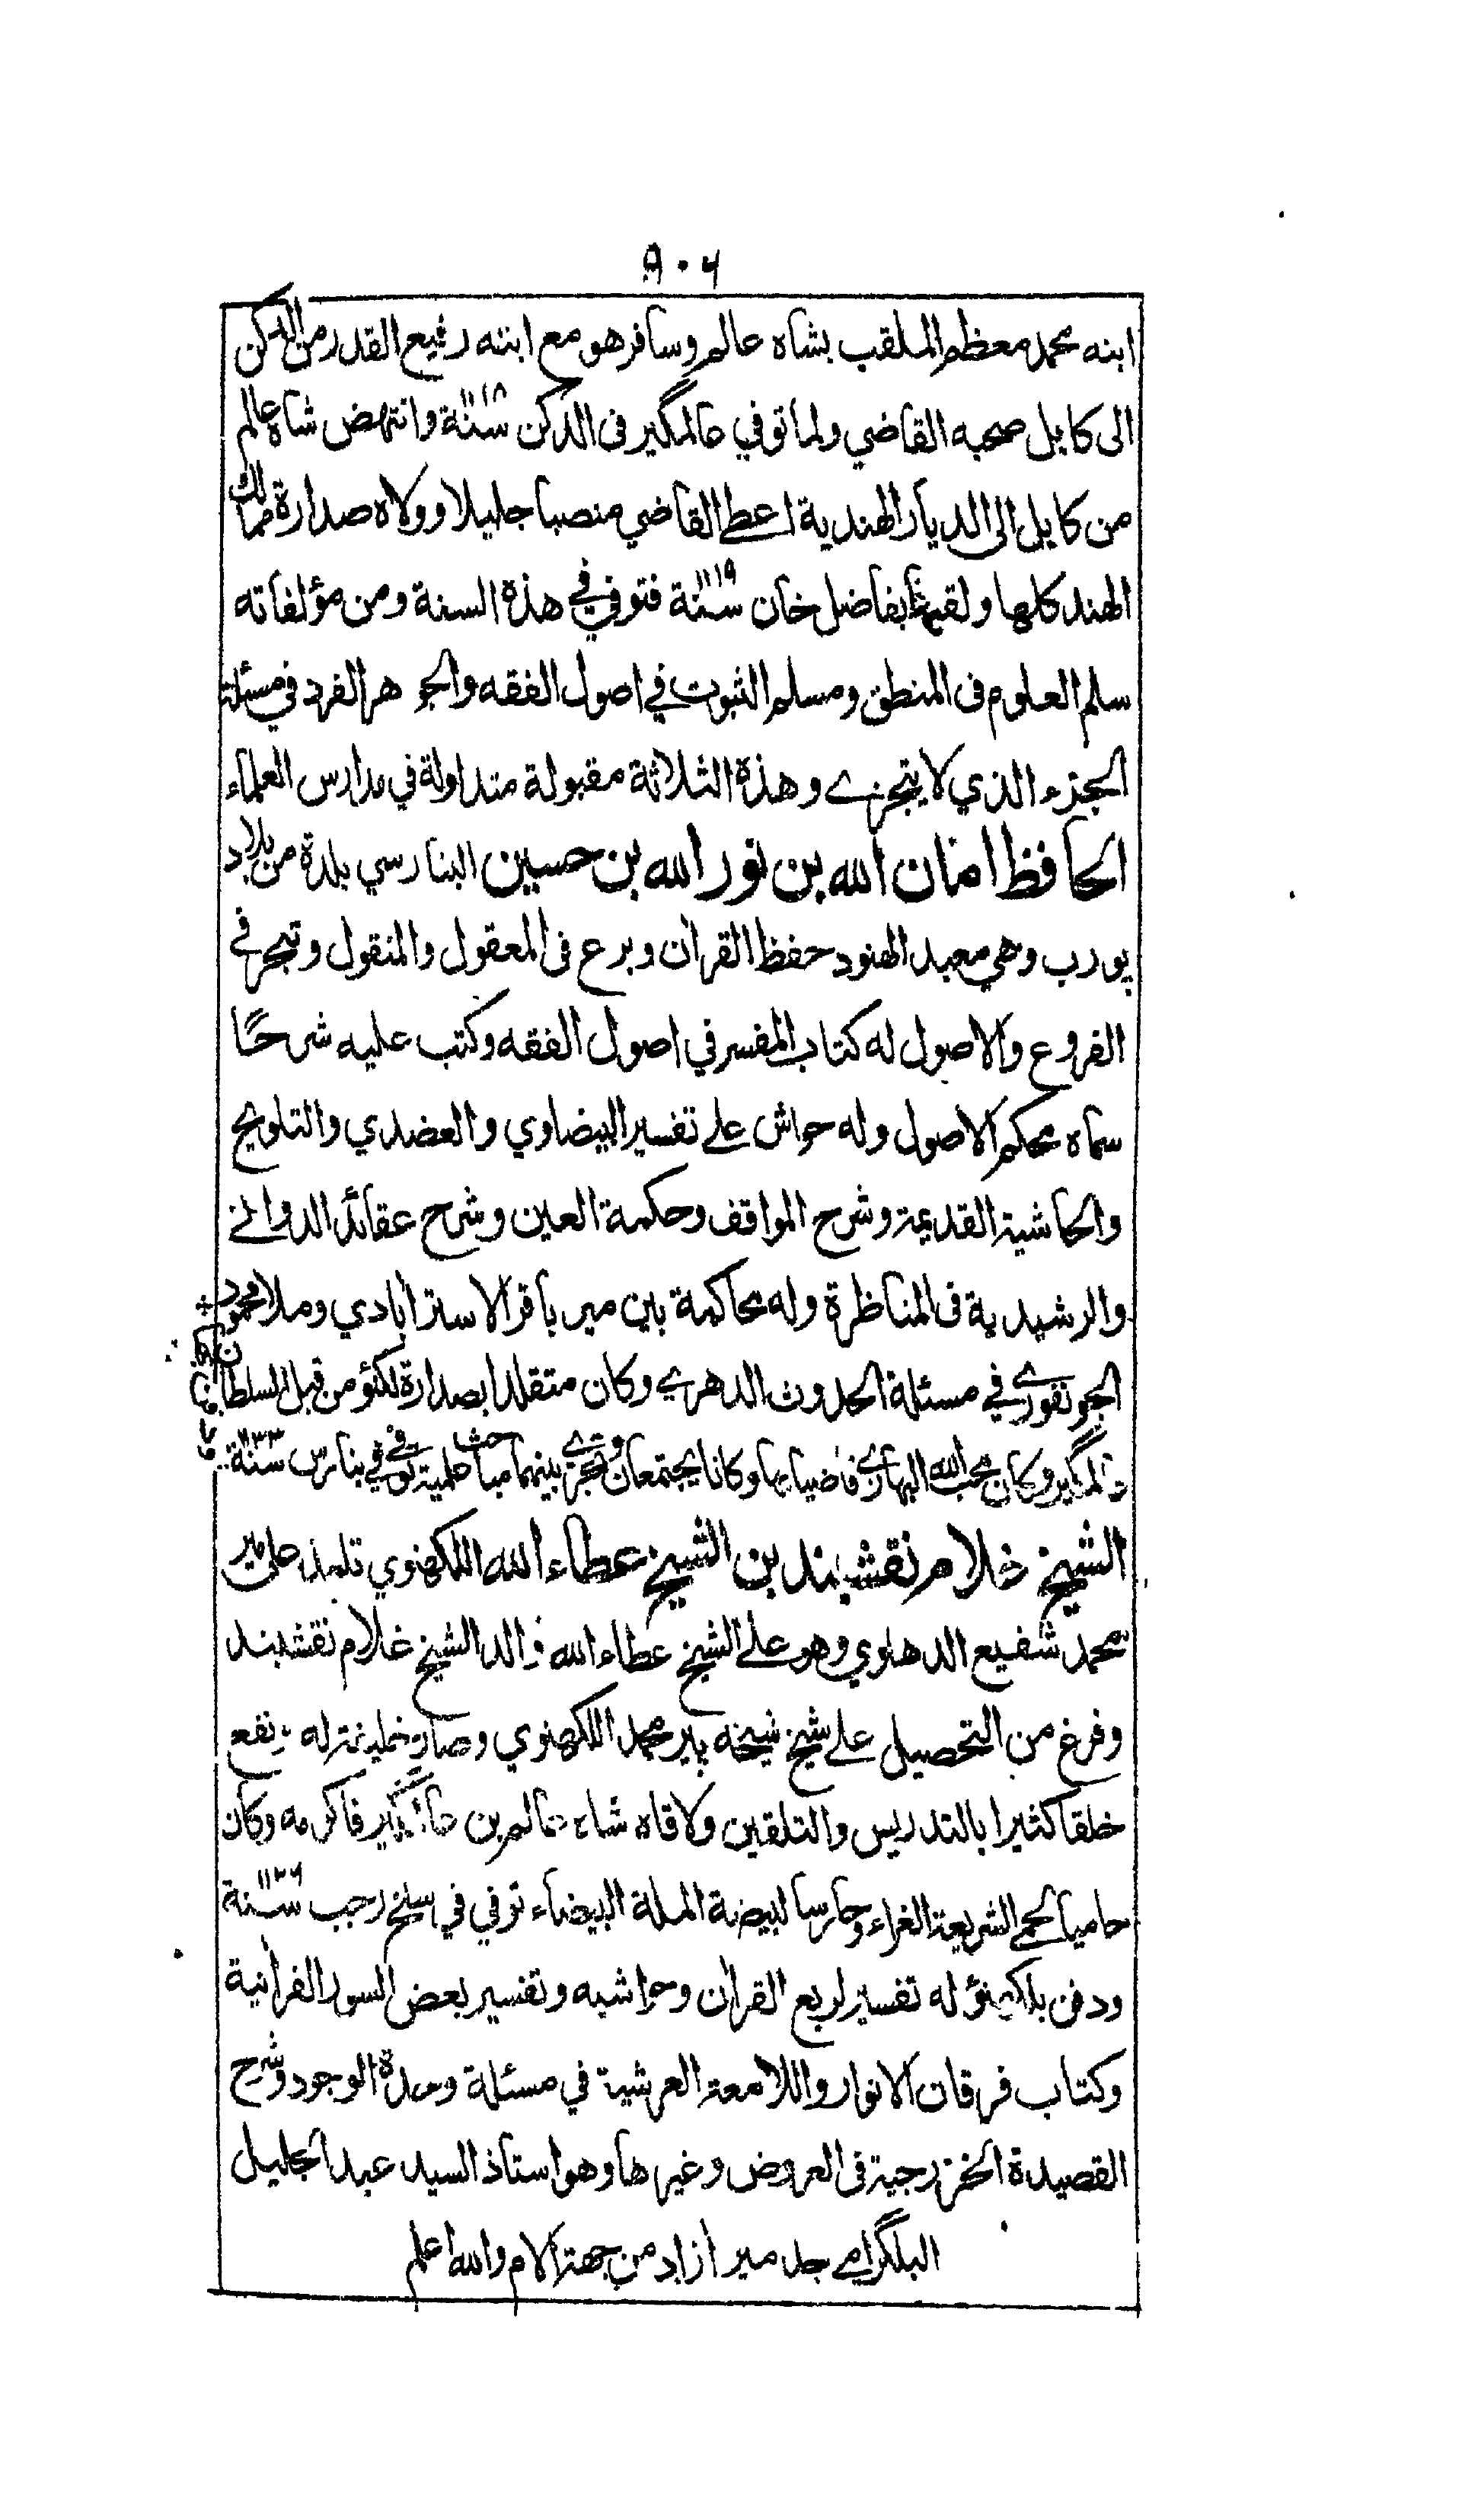 ٩٠٦
ابنه محمد معظم الملقب بشاه عالم وسافر هو مع ابنته رفيع القدر من الدكن
الى كابل صحبه القاضي ولما توفي عالمگير فى الدكن سنة ١١١٨ وانتهض شاه عالم
من كابل الى الديار الهندية اعطے القاضي منصبا جليلا وولاه صدارة ممالك
الهند كلها ولقبه بفاضل خان سنة ١١١٩ فتوفي في هذه السنة ومن مؤلفاته
سلم العلوم فى المنطق ومسلم الثبوت في اصول الفقه والجوهر الفرد في مسئلة
الجزء الذي لا يتجزے وهذه الثلاثة مقبولة متداولة في مدارس العلماء
الحافظ امان الله بن نور الله بن حسين البنارسي بلدة من بلاد
پورب وهي معبد الهنود حفظ القرآن وبرع فى المعقول والمنقول وتبحر في
الفروع والاصول له كتاب المفسر في اصول الفقه وكتب عليه شرحًا
سماه محكم الاصول وله حواش علے تفسير البيضاوي والعضدي والتلويح
والحاشية القديمة وشرح المواقف وحكمة العين وشرح عقائد الدوانے
والرشيدية فى المناظرة وله محاكمة بين مير باقر الاسترابادي وملا محمود
الجونفورے في مسئلة الحدوث الدهرے وكان متقلدا بصدارة لكنؤ من قبل السلطان
عالمگير وكان محب الله البهارے قاضيا بها وكانا يجتمعان وتجرے بينهما مباحث علمية توفي في بنارس سنة ١١٣٣
الشيخ غلام نقشبند بن الشيخ عطاء الله اللكهنوي تلمذ على مير
محمد شفيع الدهلوي وهو علے الشيخ عطاء الله والد الشيخ غلام نقشبند
وفرغ من التحصيل علے شيخ شيخه پير محمد اللكهنوي وصار خليفة له ونفع
خلقا كثيرا بالتدريس والتلقين ولاقاه شاه عالم بن عالمگير فاكرمه وكان
حاميا لحمى الشريعة الغراء وحارسا لبيضة الملة البيضاء توفي في سلخ رجب سنة ١١٢٦
ودفن بلكهنؤ له تفسير لربع القرآن وحواشيه وتفسير بعض السور القرآنية
وكتاب فرقان الانوار واللامعة العرشية في مسئلة وحدة الوجود وشرح
القصيدة الخزرجية فى العروض وغيرها وهو استاذ السيد عبد الجليل
البلگرامے جد مير ازاد من جهة الام والله اعلم